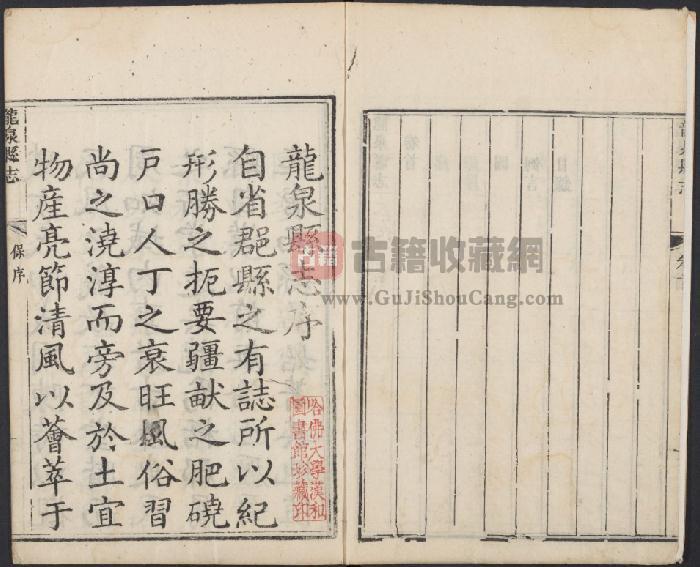 龍泉縣志序
自省郡縣之有誌所以紀
形勝之扼要疆畎之肥磽
戸口人丁之衰旺風俗習
尚之澆淳而旁及於土宜
物産亮節清風以薈萃于
龍泉縣志
保序
哈佛大學漢和
圖書館珍藏印
古籍
古籍收藏网
www.GuJiShouCang.com